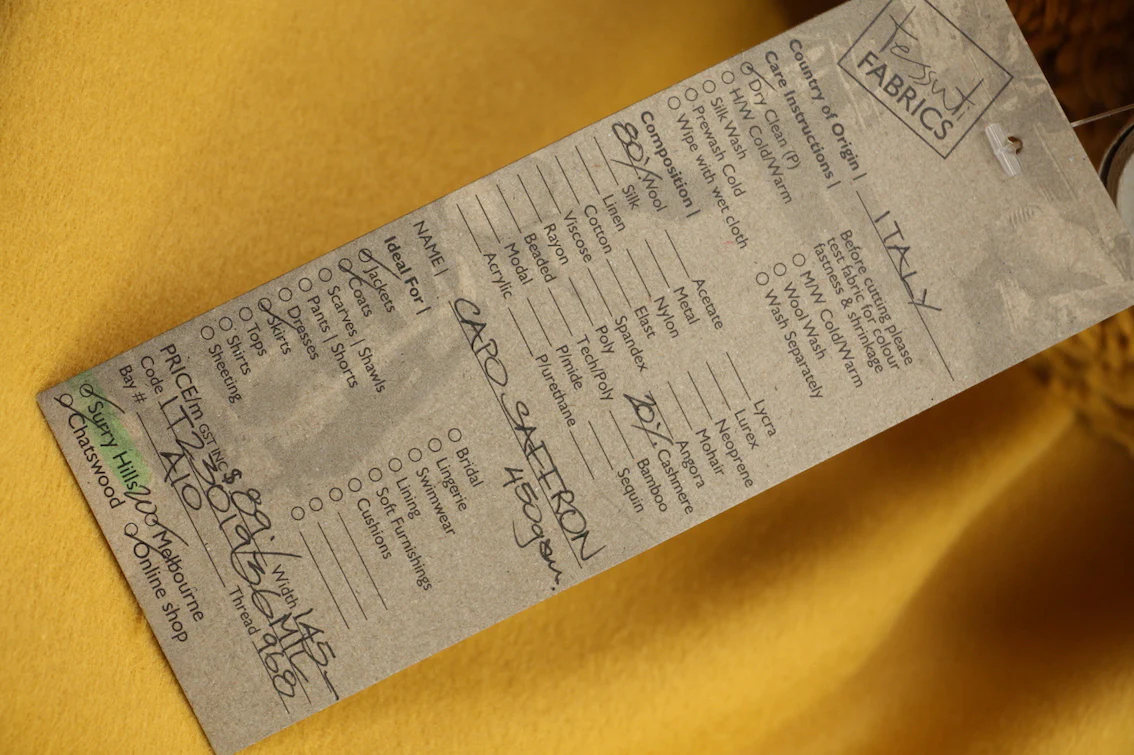 tessuti
FABRICS
Country of Origin | ITALY
Care Instructions |
Dry Clean (P)
H/W Cold/Warm
Silk Wash
Prewash Cold
Wipe with wet cloth
Before cutting please
test fabric for colour
fastness & shrinkage
M/W Cold/Warm
Wool Wash
Wash Separately
Composition |
80% Wool
Silk
Linen
Cotton
Viscose
Rayon
Beaded
Modal
Acrylic
Acetate
Metal
Nylon
Elast
Spandex
Poly
Tech/Poly
P/mide
P/urethane
Lycra
Lurex
Neoprene
Mohair
Angora
20% Cashmere
Bamboo
Sequin
NAME | CAPO SAFFRON
450gsm.
Ideal For |
Jackets
Coats
Scarves | Shawls
Pants | Shorts
Dresses
Skirts
Tops
Shirts
Sheeting
Bridal
Lingerie
Swimwear
Lining
Soft Furnishings
Cushions
PRICE/m GST INC $ 89.- Width 145
Code Thread 968
Bay # A10
Surry Hills
Chatswood
Melbourne
Online shop